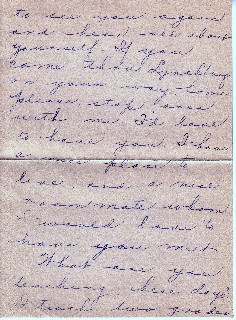 to see you again
and hear all about
yourself. If you
come thru Lynchburg
on your way home
please stop over
with me. I'd love
to have you. I have
a nice place to
live, and a nice
roommate whom
I would love to
have you meet.
What are you
teaching these days?
I teach two grades